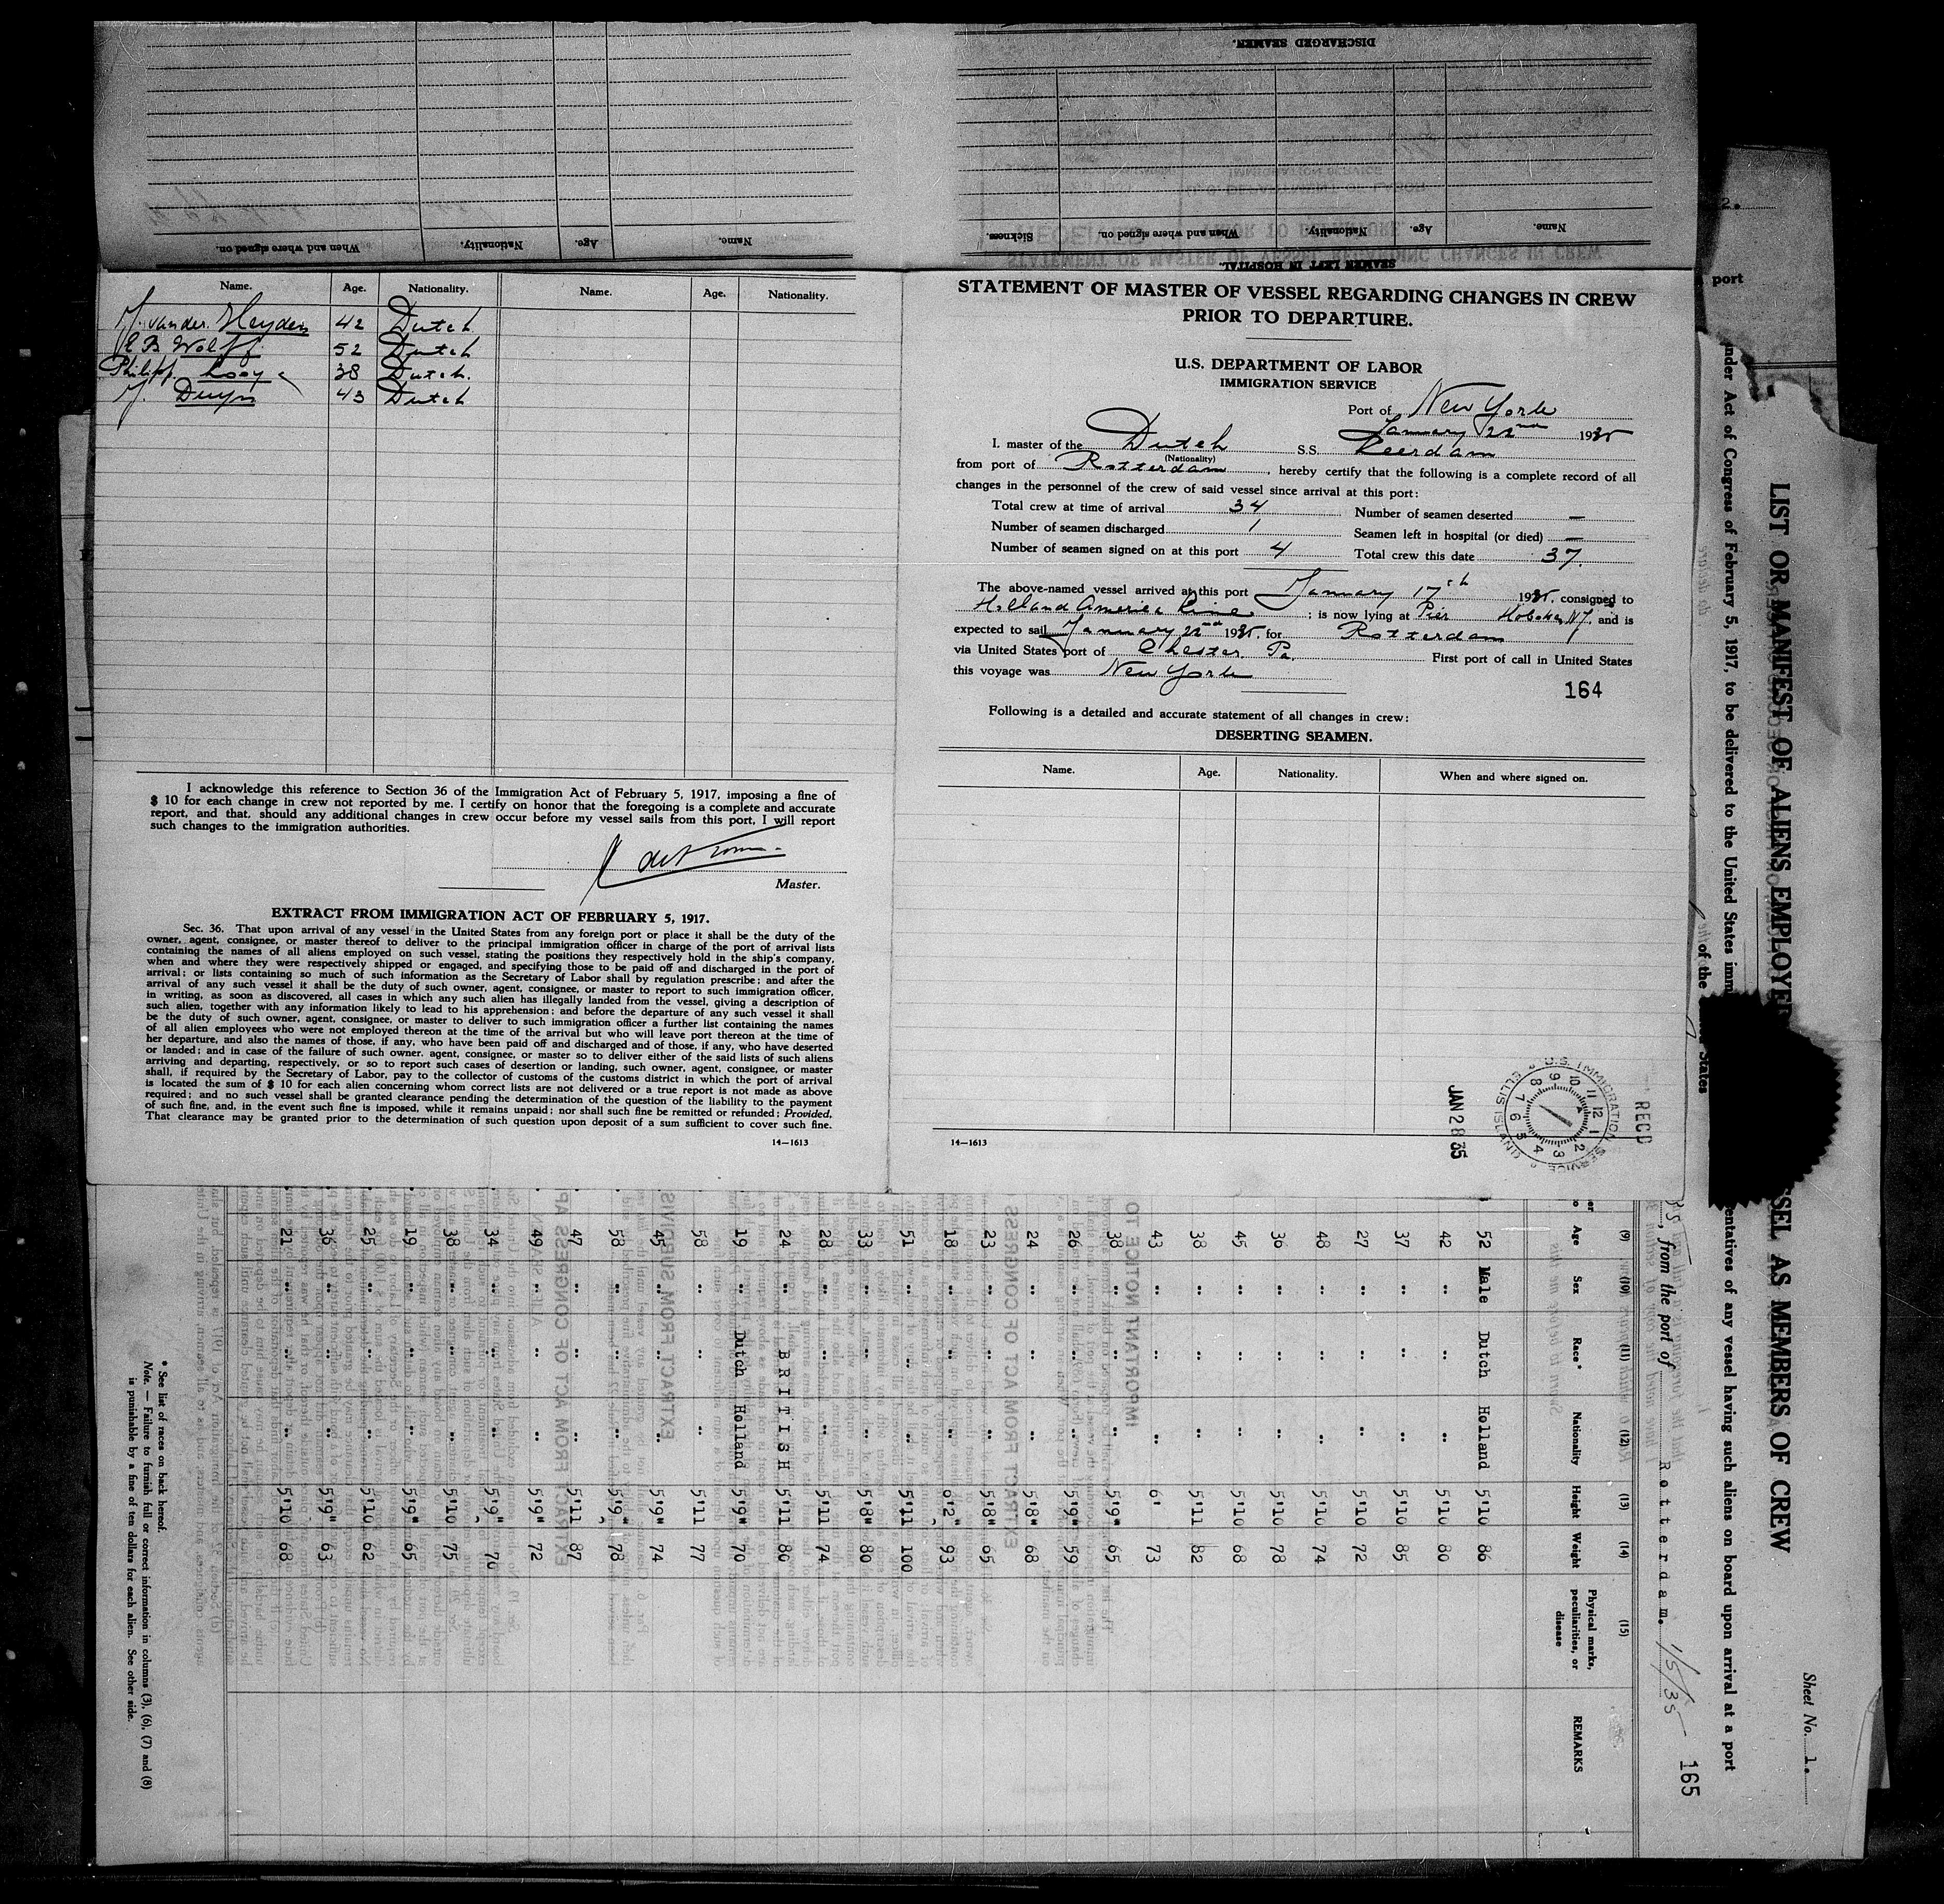 DISCHARGED SEAMEN.
Name. Age. Nationality. When and where signed on.
Name. Age. Nationality. When and where signed on. Sickness.
SEAMEN LEFT IN HOSPITAL.
Name. Age. Nationality. Name. Age. Nationality.
J. van der Heyden 42 Dutch
E B Wolff 52 Dutch
Philipp 38 Dutch.
J. Duyn 43 Dutch
I acknowledge this reference to Section 36 of the Immigration Act of February 5, 1917, imposing a fine of
$ 10 for each change in crew not reported by me. I certify on honor that the foregoing is a complete and accurate
report, and that, should any additional changes in crew occur before my vessel sails from this port, I will report
such changes to the immigration authorities.
Master.
EXTRACT FROM IMMIGRATION ACT OF FEBRUARY 5, 1917.
Sec. 36. That upon arrival of any vessel in the United States from any foreign port or place it shall be the duty of the
owner, agent, consignee, or master thereof to deliver to the principal immigration officer in charge of the port of arrival lists
containing the names of all aliens employed on such vessel, stating the positions they respectively hold in the ship's company,
when and where they were respectively shipped or engaged, and specifying those to be paid off and discharged in the port of
arrival; or lists containing so much of such information as the Secretary of Labor shall by regulation prescribe; and after the
arrival of any such vessel it shall be the duty of such owner, agent, consignee, or master to report to such immigration officer,
in writing, as soon as discovered, all cases in which any such alien has illegally landed from the vessel, giving a description of
such alien, together with any information likely to lead to his apprehension; and before the departure of any such vessel it shall
be the duty of such owner, agent, consignee, or master to deliver to such immigration officer a further list containing the names
of all alien employees who were not employed thereon at the time of the arrival but who will leave port thereon at the time of
her departure, and also the names of those, if any, who have been paid off and discharged and of those, if any, who have deserted
or landed; and in case of the failure of such owner, agent, consignee, or master so to deliver either of the said lists of such aliens
arriving and departing, respectively, or so to report such cases of desertion or landing, such owner, agent, consignee, or master
shall, if required by the Secretary of Labor, pay to the collector of customs of the customs district in which the port of arrival
is located the sum of $ 10 for each alien concerning whom correct lists are not delivered or a true report is not made as above
required; and no such vessel shall be granted clearance pending the determination of the question of the liability to the payment
of such fine, and, in the event such fine is imposed, while it remains unpaid; nor shall such fine be remitted or refunded; Provided,
That clearance may be granted prior to the determination of such question upon deposit of a sum sufficient to cover such fine.
14—1613
STATEMENT OF MASTER OF VESSEL REGARDING CHANGES IN CREW
PRIOR TO DEPARTURE.
U.S. DEPARTMENT OF LABOR
IMMIGRATION SERVICE
Port of New York
January 22nd 1935
I, master of the Dutch S.S. Leerdam
(Nationality)
from port of Rotterdam, hereby certify that the following is a complete record of all
changes in the personnel of the crew of said vessel since arrival at this port:
Total crew at time of arrival 34 Number of seamen deserted —
Number of seamen discharged 1 Seamen left in hospital (or died) —
Number of seamen signed on at this port 4 Total crew this date 37.
The above-named vessel arrived at this port January 17th 1935, consigned to
Holland America Line; is now lying at Pier Hoboken N.J. and is
expected to sail January 22nd 1935, for Rotterdam
via United States port of Chester. Pa. First port of call in United States
this voyage was New York
164
Following is a detailed and accurate statement of all changes in crew:
DESERTING SEAMEN.
Name. Age. Nationality. When and where signed on.
14—1613
JAN 28 35
U.S. IMMIGRATION SERVICE ELLIS ISLAND
1 2 3 4 5 6 7 8 9 10 11 12
REC'D
2.
port
LIST OR MANIFEST OF ALIENS EMPLOYE SSEL AS MEMBERS OF CREW
Sheet No. 1.
nder Act of Congress of February 5, 1917, to be delivered to the United States imm entatives of any vessel having such aliens on board upon arrival at a port
of the States
, from the port of Rotterdam. 1/5/35
165
(9) (10) (11) (12) (13) (14) (15)
Age Sex Race* Nationality Height Weight Physical marks, peculiarities, or disease REMARKS
52 Male Dutch Holland 5'10 86
42 " " " 5'10 80
37 " " " 5'10 85
27 " " " 5'10 72
48 " " " 5'10 74
36 " " " 5'10 78
45 " " " 5'10 68
38 " " " 5'11 82
43 " " " 6' 73
38 " " " 5'9" 65
26 " " " 5'9" 59
24 " " " 5'8" 68
23 " " " 5'8" 65
18 " " " 6'2" 93
51 " " " 5'11 100
33 " " " 5'8" 80
28 " " " 5'11 74
24 " BRITISH 5'11 80
19 " Dutch Holland 5'9" 70
58 " " " 5'11 77
45 " " " 5'9" 74
58 " " " 5'9" 78
47 " " " 5'11 87
49 " " " 5'9" 72
34 " " " 5'9" 70
38 " " " 5'10 75
19 " " " 5'9" 65
25 " " " 5'10 62
36 " " " 5'9" 63
21 " " " 5'10 68
* See list of races on back hereof.
Note. — Failure to furnish full or correct information in columns (3), (6), (7) and (8)
is punishable by a fine of ten dollars for each alien. See other side.